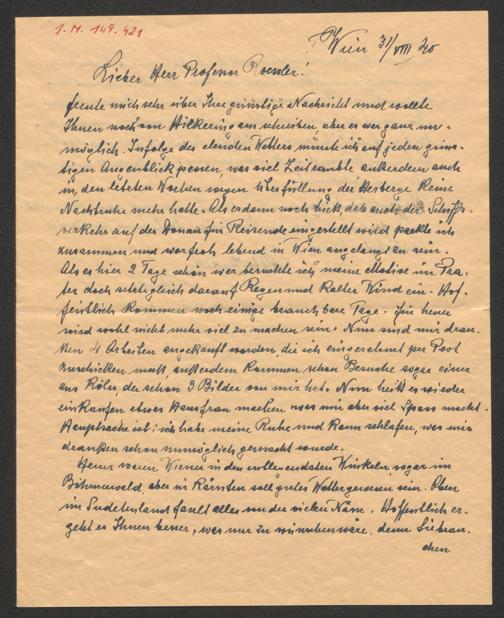 J. N. 149.421
Wien 31/VIII 40
Lieber Herr Professor Roessler!
freute mich sehr über Ihre günstige Nachricht und wollte
Ihnen noch von aus schreiben, aber es war ganz un-
möglich. Infolge des elenden Wetters musste ich auf jeden güns-
tigen Augenblick passen, was viel Zeit raubte außerdem auch
in den letzten Wochen wegen Überfüllung der Herberge keine
Nachtruhe mehr hatte. Als es dann noch hieß, daß auch der Schiffs-
verkehr auf der Donau für Reisende eingestellt wird packte ich
zusammen und war froh lebend in Wien angelangt zu sein.
Als es hier 2 Tage schön war ich meine Motive im Pra-
ter doch setzte gleich darauf Regen und kalter Wind ein. Hof-
fentlich kommen noch einige brauchbare Tage. Für heuer
wird wohl nicht mehr viel zu machen sein. Nun sind mir drau-
ßen 4 Arbeiten angekauft worden, die ich per Post
zuschicken muß, außerdem kommen schon Besuche sogar einer
aus Köln, der schon 3 Bilder von mir hat. Nun heißt es wieder
einkaufen etwas Hausfrau machen was mir aber viel Spass macht.
Hauptsache ist: ich habe meine Ruhe und kann schlafen, was mir
draußen schon unmöglich gemacht wurde.
Heuer waren Wiener in den entlegendsten Winkeln, sogar im
Böhmerwald aber in Kärnten soll gutes Wetter gewesen sein. Oben
im Sudetenland fault alles von der vielen Nässe. Hoffentlich er-
geht es Ihnen besser, was nur zu wünschen wäre, denn Sie brau-
chen